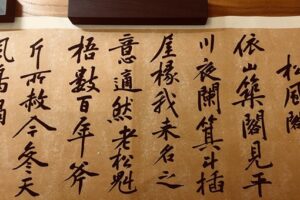 松風閣
依山築閣見平
川夜闌箕斗插
屋椽我来名之
意適然老松魁
梧數百年斧
斤所赦今參天
風鳴媧